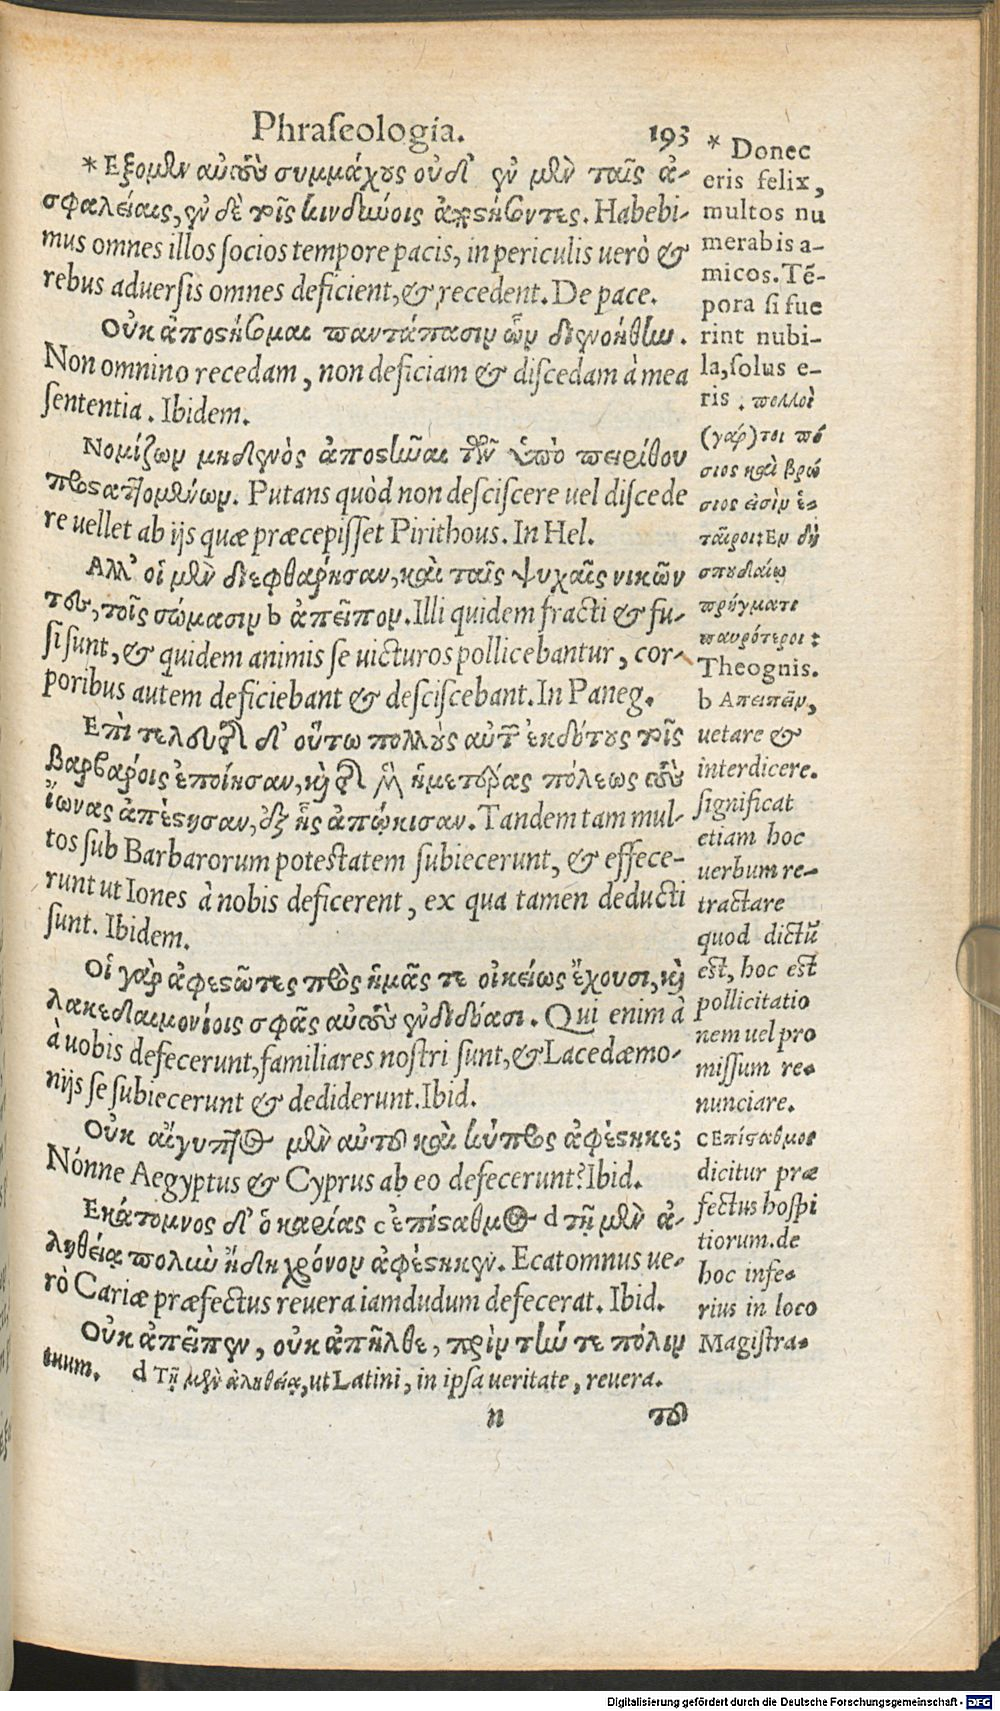 Phraseologia. 193
*Εξομεν αὐτοὺς συμμάχους οὐδ' ἐν μὲν ταῖς ἀ-
σφαλείαις, ἐν δὲ τοῖς κινδύνοις ἀποστήσοντες. Habebi-
mus omnes illos socios tempore pacis, in periculis uerò &
rebus aduersis omnes deficient, & recedent. De pace.
Οὐκ ἀποστήσομαι παντάπασιν ὧν διενοήθην.
Non omnino recedam, non deficiam & discedam à mea
sententia. Ibidem.
Νομίζων μηδενὸς ἀποστῆναι τῶν ὑπὸ πειρίθου
προσταττομένων. Putans quòd non desciscere uel discede
re uellet ab ijs quæ præcepisset Pirithous. In Hel.
Αλλ' οἱ μὲν διεφθάρησαν, καὶ ταῖς ψυχαῖς νικῶν
τες, τοῖς σώμασιν b ἀπεῖπον. Illi quidem fracti & fu-
si sunt, & quidem animis se uicturos pollicebantur, cor-
poribus autem deficiebant & desciscebant. In Paneg.
Επὶ τελευτῆς δ' οὕτω πολλοὺς αὐτῶν ἐκδότους τοῖς
Βαρβάροις ἐποίησαν, καὶ τῆς ἡμετέρας πόλεως τοὺς
ἴωνας ἀπέστησαν, ἐξ ἧς ἀπῴκισαν. Tandem tam mul-
tos sub Barbarorum potestatem subiecerunt, & effece-
runt ut Iones à nobis deficerent, ex qua tamen deducti
sunt. Ibidem.
Οἱ γὰρ ἀφεστῶτες πρὸς ἡμᾶς τε οἰκείως ἔχουσι, καὶ
λακεδαιμονίοις σφᾶς αὐτοὺς ἐνδιδόασι. Qui enim à
à uobis defecerunt, familiares nostri sunt, & Lacedæmo-
nijs se subiecerunt & dediderunt. Ibid.
Οὐκ αἴγυπτος μὲν αὐτοῦ καὶ κύπρος ἀφέστηκε;
Nónne Aegyptus & Cyprus ab eo defecerunt? Ibid.
Εκάτομνος δ' ὁ καρίας c ἐπίσταθμος d τῇ μὲν ἀ-
ληθείᾳ πολὺν ἤδη χρόνον ἀφέστηκεν. Ecatomnus ue-
rò Cariæ præfectus reuera iamdudum defecerat. Ibid.
Οὐκ ἀπεῖπεν, οὐκ ἀπῆλθε, πρὶν τήν τε πόλιν
* Donec
eris felix,
multos nu
merabis a-
micos. Tē-
pora si fue
rint nubi-
la, solus e-
ris. πολλοὶ
(γάρ)τοι πό
σιος καὶ βρώ
σιος εἰσὶν ἑ-
ταῖροι: Εν δὴ
σπουδαίῳ
πρήγματι
παυρότεροι:
Theognis.
b Απειπεῖν,
uetare &
interdicere.
significat
etiam hoc
uerbum re-
tractare
quod dictū
est, hoc est
pollicitatio
nem uel pro
missum re-
nunciare.
c Επίσταθμος
dicitur præ
fectus hospi
tiorum. de
hoc infe-
rius in loco
Magistra-
tuum. d Τῇ μὲν ἀληθείᾳ, ut Latini, in ipsa ueritate, reuera.
n του
Digitalisierung gefördert durch die Deutsche Forschungsgemeinschaft - DFG